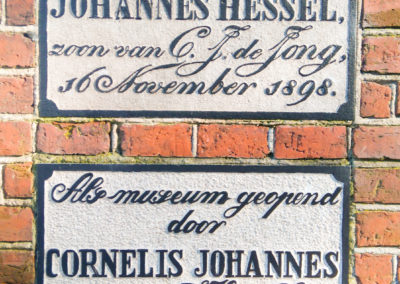 JOHANNES HESSEL,
zoon van C. J. de Jong,
16 November 1898.
Als museum geopend
door
CORNELIS JOHANNES